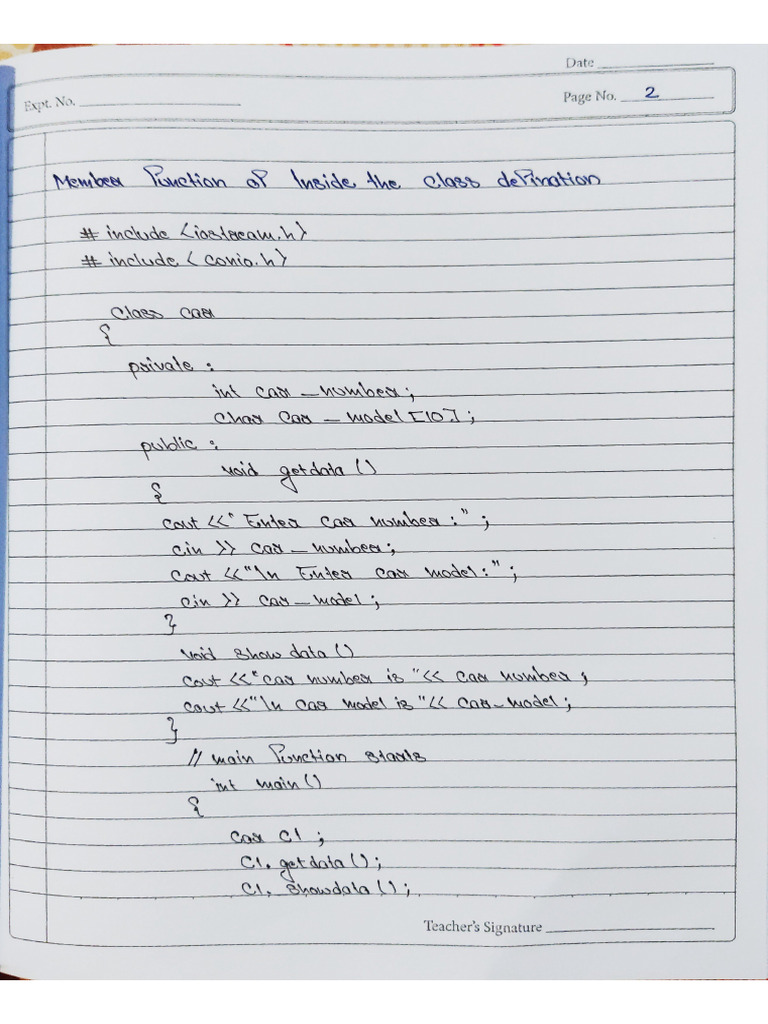 Date
Expt. No.
Page No. 2
Member Function of Inside the Class defination
# include <iostream.h>
# include < conio.h>
Class car
{
private :
int car _ number ;
Char Car _ model [10] ;
public :
void getdata ()
{
cout << "Enter car number :" ;
cin >> car _ number ;
Cout << "\n Enter car model :" ;
cin >> car _ model ;
}
void show data ()
cout << "car number is "<< car number ;
cout << "\n Car model is "<< car_model ;
}
// main Function starts
int main ()
{
car C1 ;
C1. getdata () ;
C1. showdata () ;
Teacher's Signature